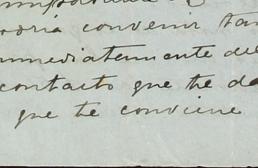 odria convenir tan
inmediatemente de
contacto que he da
que te conviene